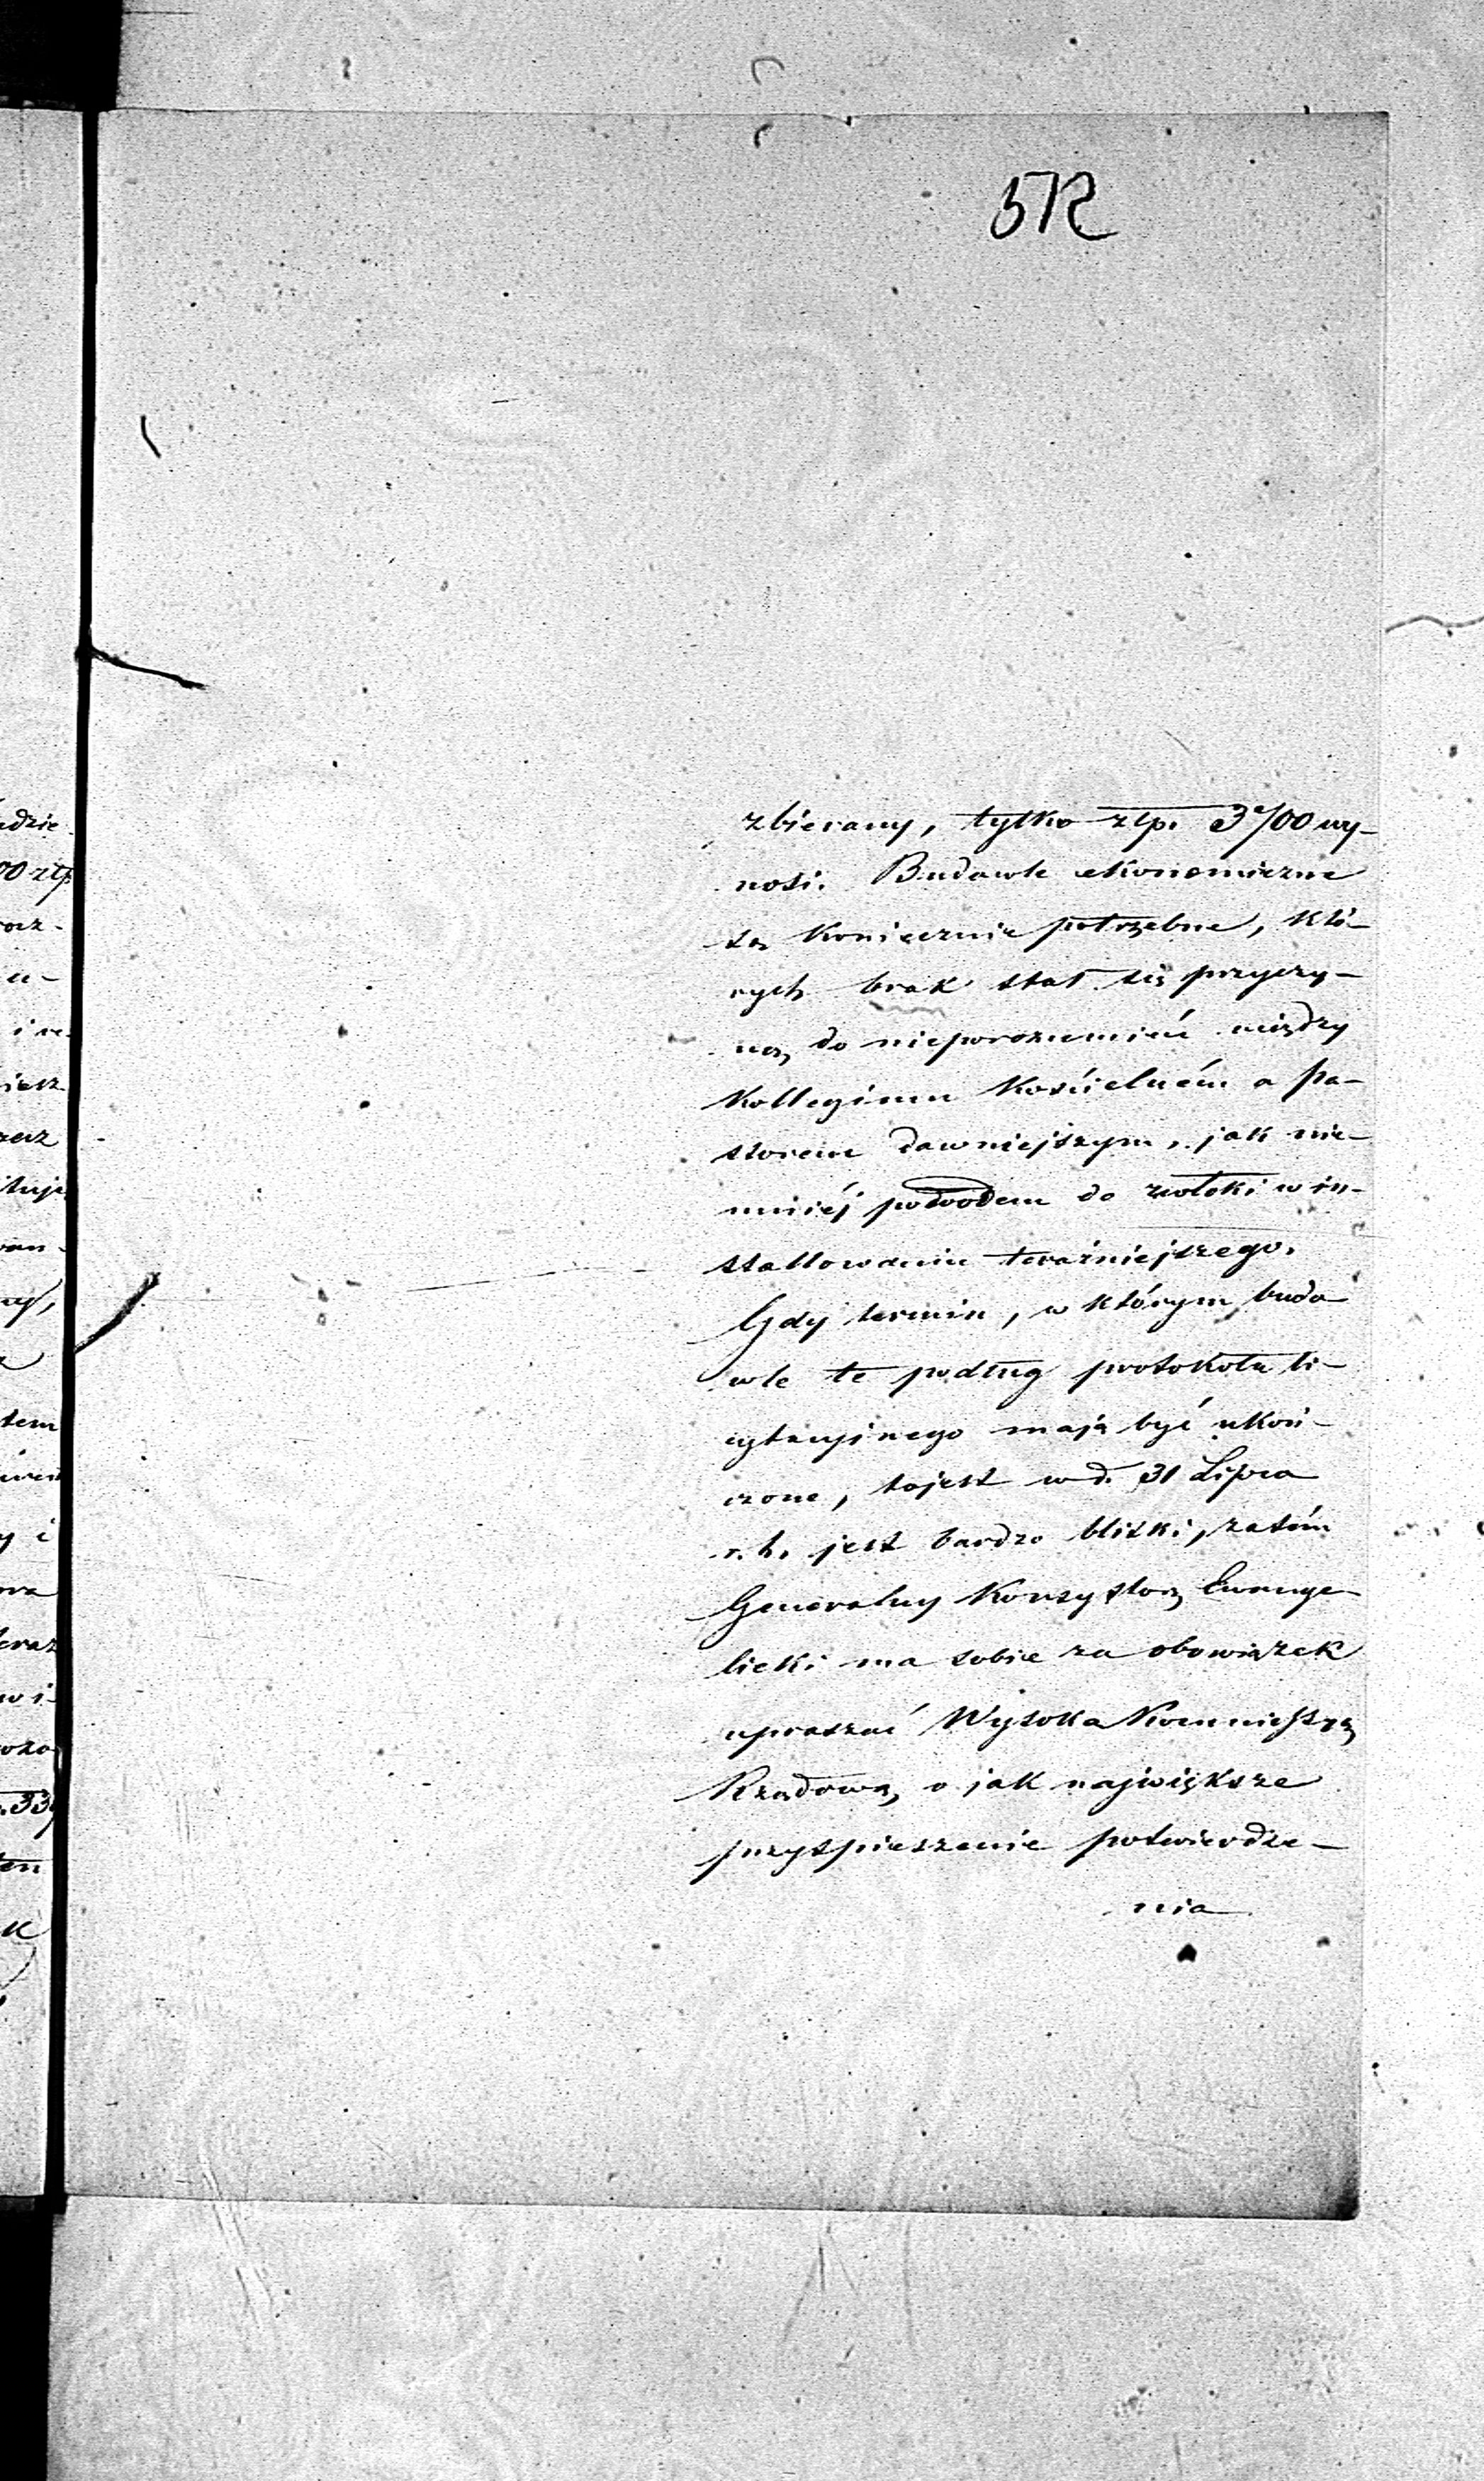 512
zbierany, tylko złp. 3700 wy-
nosi. Budowle ekonomiczne
są koniecznie potrzebne, któ-
rych brak stał się przyczy-
ną do nieporozumień między
Kollegium Kościelném a pa-
storem dawniejszym, jak nie-
mniéj powodem do zwłoki w in-
stallowaniu teraźniejszego.
Gdy termin, w którym budo
wle te podług protokołu li-
cytacyjnego mają być ukoń-
czone, tojest w d. 31 Lipca
r. b. jest bardzo bliski, zatém
Generalny Konsystorz Ewange
licki ma sobie za obowiązek
upraszać Wysoka Kommissyą
Rządową, o jak największe
przyspieszenie potwierdze-
nia